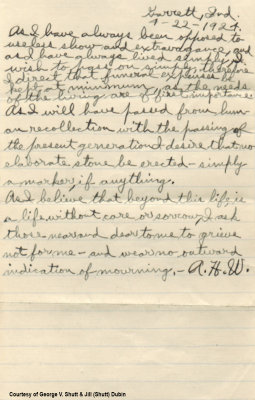 Garrett, Ind.
9-22-1924.
As I have always been opposed to
useless show and extravagance, and
as I have always lived simply, I
wish to pass on simply. Therefore
I direct that funeral expenses be
kept at minimum, as the needs
of the living are of first importance.
As I will have passed from hum-
an recollection with the passing of
the present generation I desire that no
elaborate stone be erected - simply
a marker, if anything.
As I believe that beyond this life, is
a life without care or sorrow, I ask
those near and dear to me to grieve
not for me - and wear no outward
indication of mourning. - A. H. W.
Courtesy of George V. Shutt & Jill (Shutt) Dubin